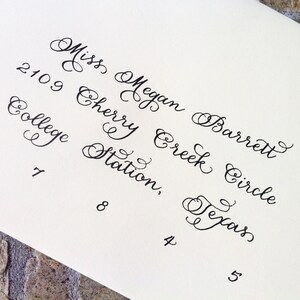 Miss Megan Barrett
2109 Cherry Creek Circle
College Station, Texas
7 8 4 5